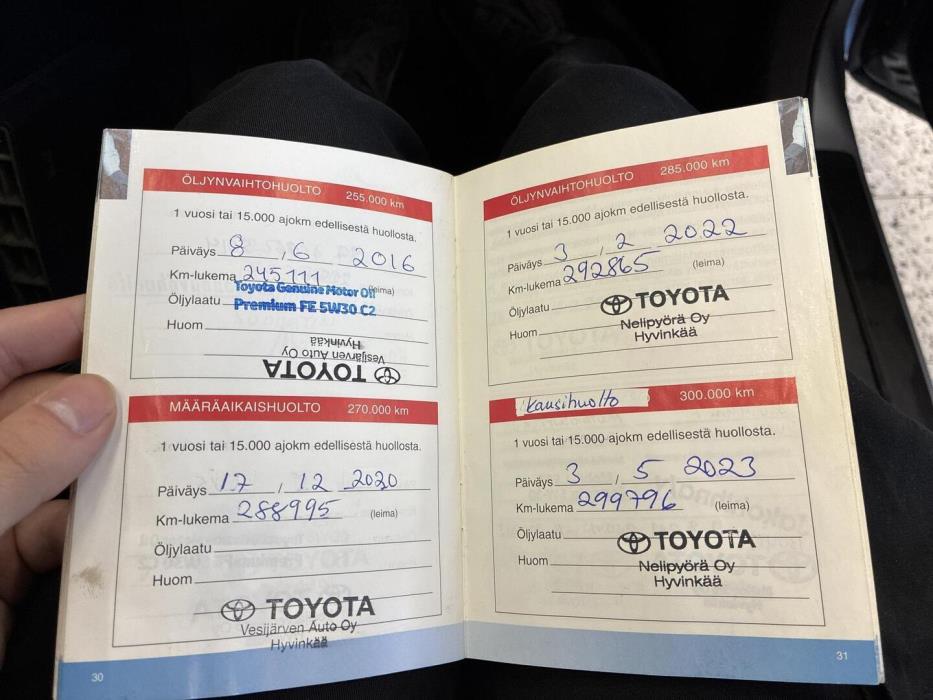 ÖLJYNVAIHTOHUOLTO 255.000 km
1 vuosi tai 15.000 ajokm edellisestä huollosta.
Päiväys 8 , 6 2016
Km-lukema 245111 (leima)
Toyota Genuine Motor Oil
Öljylaatu Premium FE 5W30 C2
Huom
TOYOTA
Vesijärven Auto Oy
Hyvinkää
MÄÄRÄAIKAISHUOLTO 270.000 km
1 vuosi tai 15.000 ajokm edellisestä huollosta.
Päiväys 17 , 12 2020
Km-lukema 288995 (leima)
Öljylaatu
Huom
TOYOTA
Vesijärven Auto Oy
Hyvinkää
30
ÖLJYNVAIHTOHUOLTO 285.000 km
1 vuosi tai 15.000 ajokm edellisestä huollosta.
Päiväys 3 , 2 2022
Km-lukema 292865 (leima)
Öljylaatu
TOYOTA
Huom
Nelipyörä Oy
Hyvinkää
kausihuolto 300.000 km
1 vuosi tai 15.000 ajokm edellisestä huollosta.
Päiväys 3 , 5 2023
Km-lukema 299796 (leima)
Öljylaatu
TOYOTA
Huom
Nelipyörä Oy
Hyvinkää
31